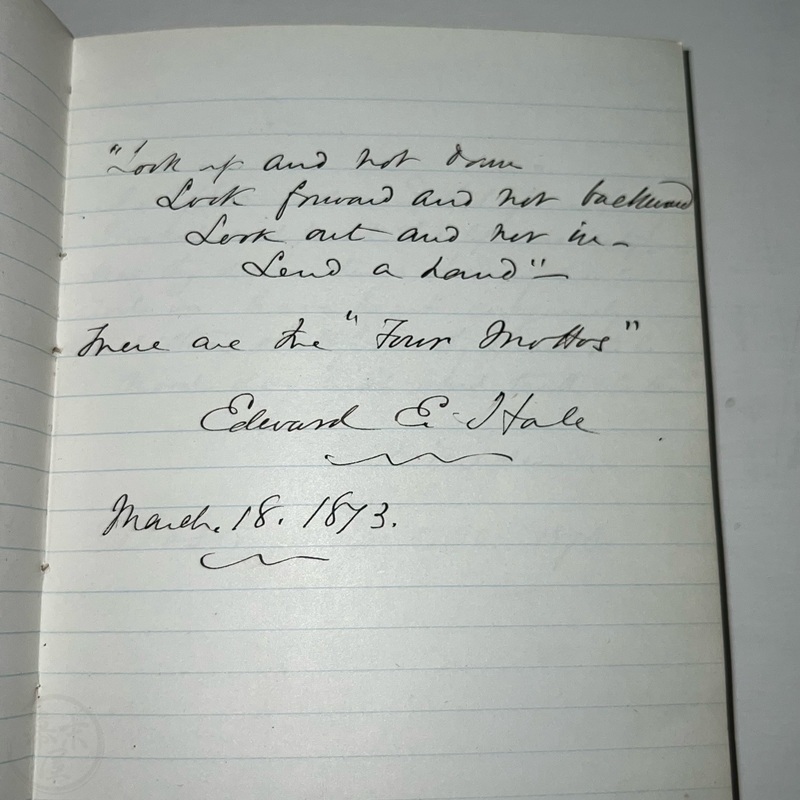 "Look up and not down
Look forward and not backward
Look out and not in –
Lend a hand" –
These are the "Four Mottos"
Edward E. Hale
March. 18. 1873.